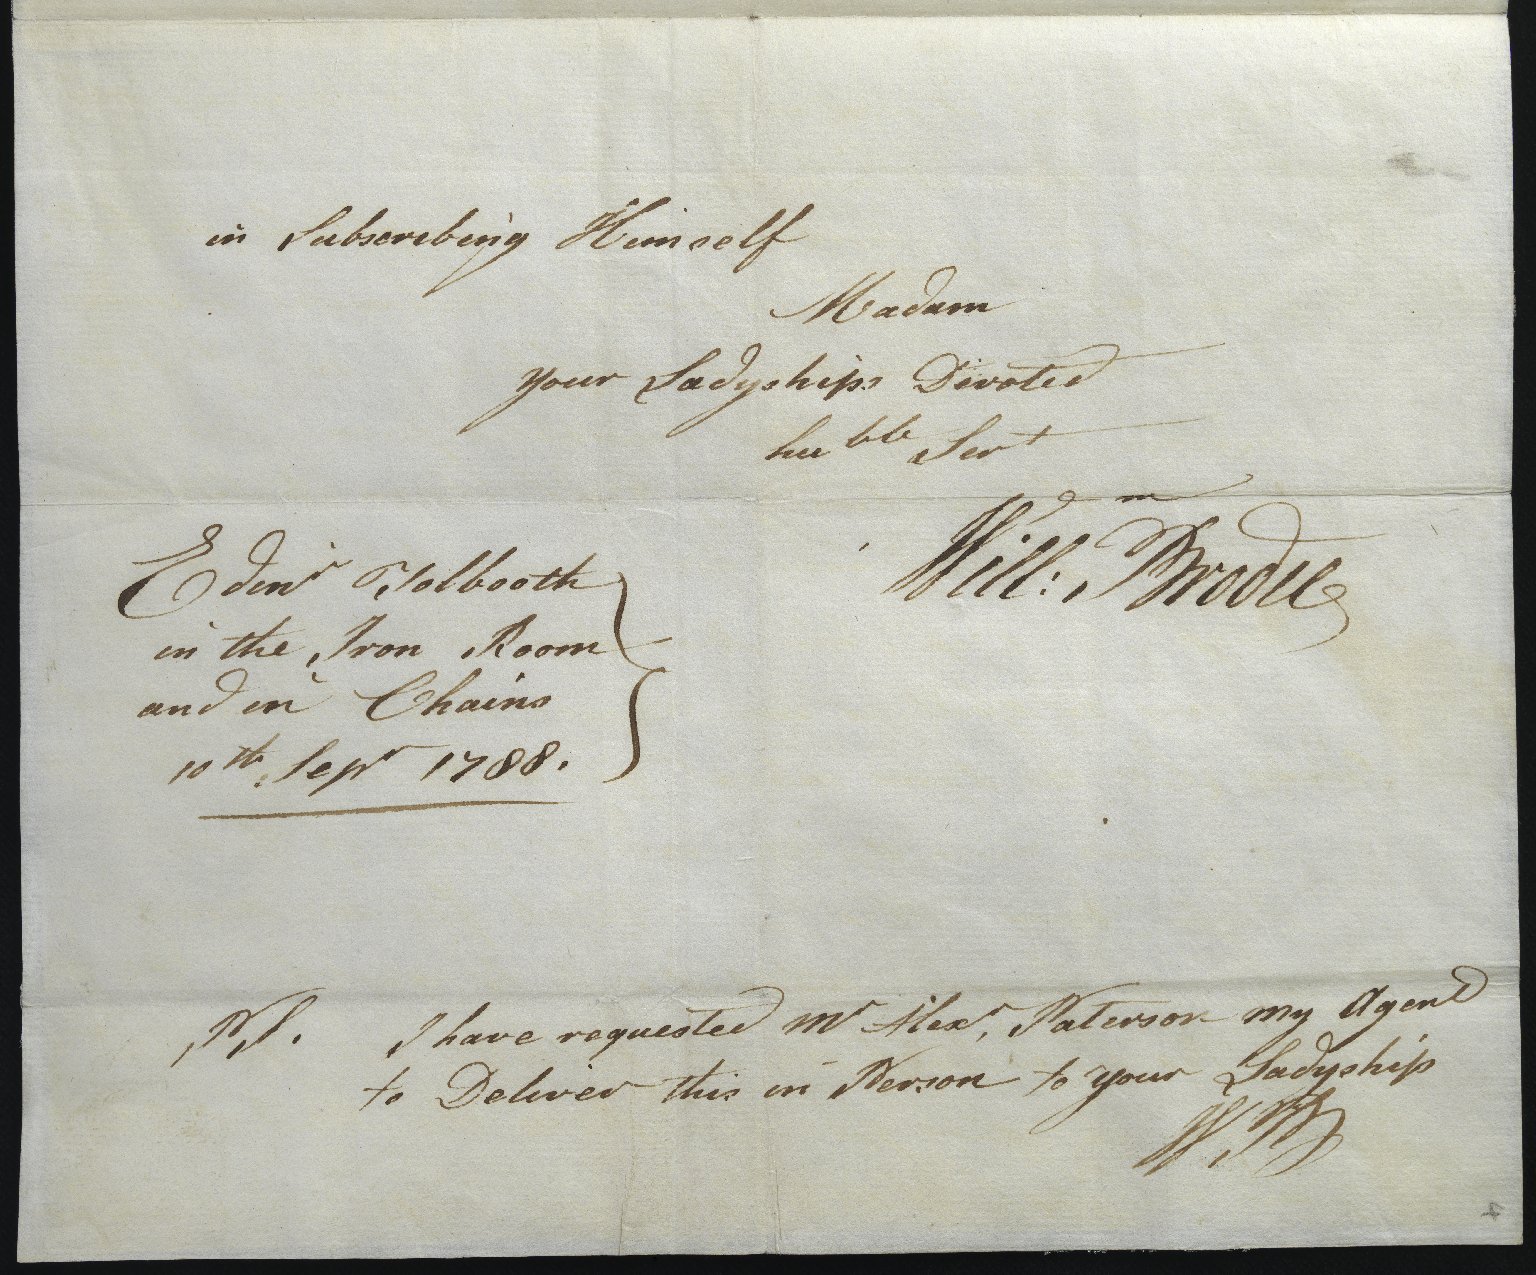 in Subscribing Himself
Madam
your Ladyships Divoted
hu^ble Ser^t
Will:^m Brodie
Eden^r Tolbooth
in the Iron Room
and in Chains
10^th Sep^r 1788.
P.S. I have requested M^r Alex^r, Paterson my Agent
to Deliver this in Person to your Ladyship
W,B
4